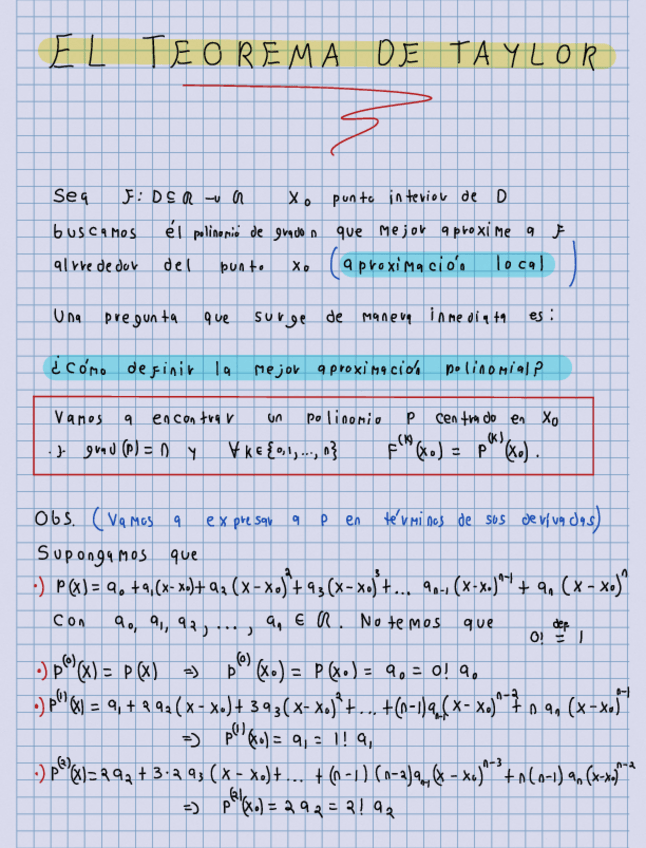 EL TEOREMA DE TAYLOR
Sea F: D⊆ℝ → ℝ x₀ punto interior de D
buscamos él polinomio de grado n que mejor aproxime a F
alrrededor del punto x₀ (aproximación local)
Una pregunta que surge de manera inmediata es:
¿cómo definir la mejor aproximación polinomial?
Vamos a encontrar un polinomio P centrado en x₀
.ᴣ. grad(p) = n y ∀k∈{0,1,...,n} F⁽ᵏ⁾(x₀) = P⁽ᵏ⁾(x₀).
Obs. (Vamos a expresar a P en términos de sus derivadas)
Supongamos que
•) P(x) = a₀ + a₁(x-x₀) + a₂(x-x₀)² + a₃(x-x₀)³ + ... aₙ₋₁(x-x₀)ⁿ⁻¹ + aₙ(x-x₀)ⁿ
con a₀, a₁, a₂, ..., aₙ ∈ ℝ. Notemos que
0! =^{def} 1
•) P⁽⁰⁾(x) = P(x) ⇒ P⁽⁰⁾(x₀) = P(x₀) = a₀ = 0! a₀
•) P⁽¹⁾(x) = a₁ + 2a₂(x-x₀) + 3a₃(x-x₀)² + ... + (n-1)aₙ₋₁(x-x₀)ⁿ⁻² + n aₙ(x-x₀)ⁿ⁻¹
⇒ P⁽¹⁾(x₀) = a₁ = 1! a₁
•) P⁽²⁾(x) = 2a₂ + 3·2a₃(x-x₀) + ... + (n-1)(n-2)aₙ₋₁(x-x₀)ⁿ⁻³ + n(n-1)aₙ(x-x₀)ⁿ⁻²
⇒ P⁽²⁾(x₀) = 2a₂ = 2! a₂